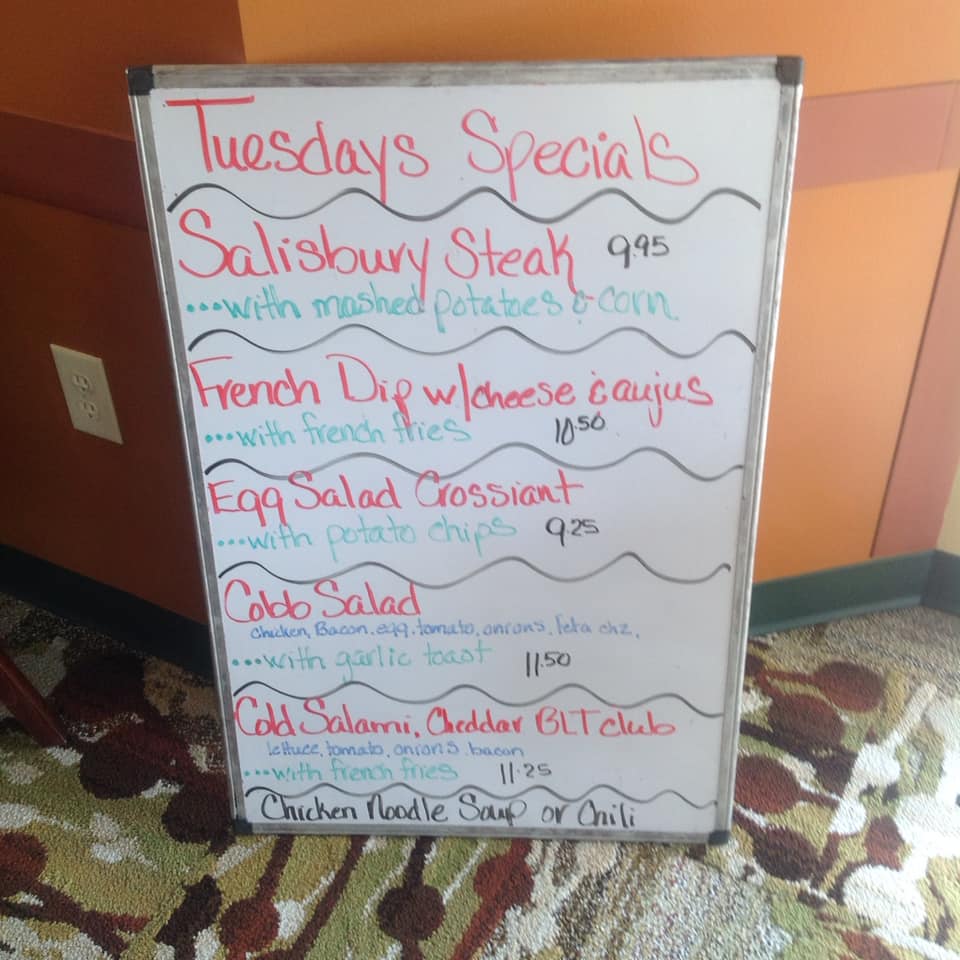 Tuesdays Specials
Salisbury Steak 9.95
...with mashed potatoes & corn
French Dip w/cheese & aujus
...with french fries 10.50
Egg Salad Crossiant
...with potato chips 9.25
Cobb Salad
chicken, Bacon, egg, tomato, onions, feta chz,
...with garlic toast 11.50
Cold Salami, Cheddar BLT club
lettuce, tomato, onions, bacon
...with french fries 11.25
Chicken Noodle Soup or Chili